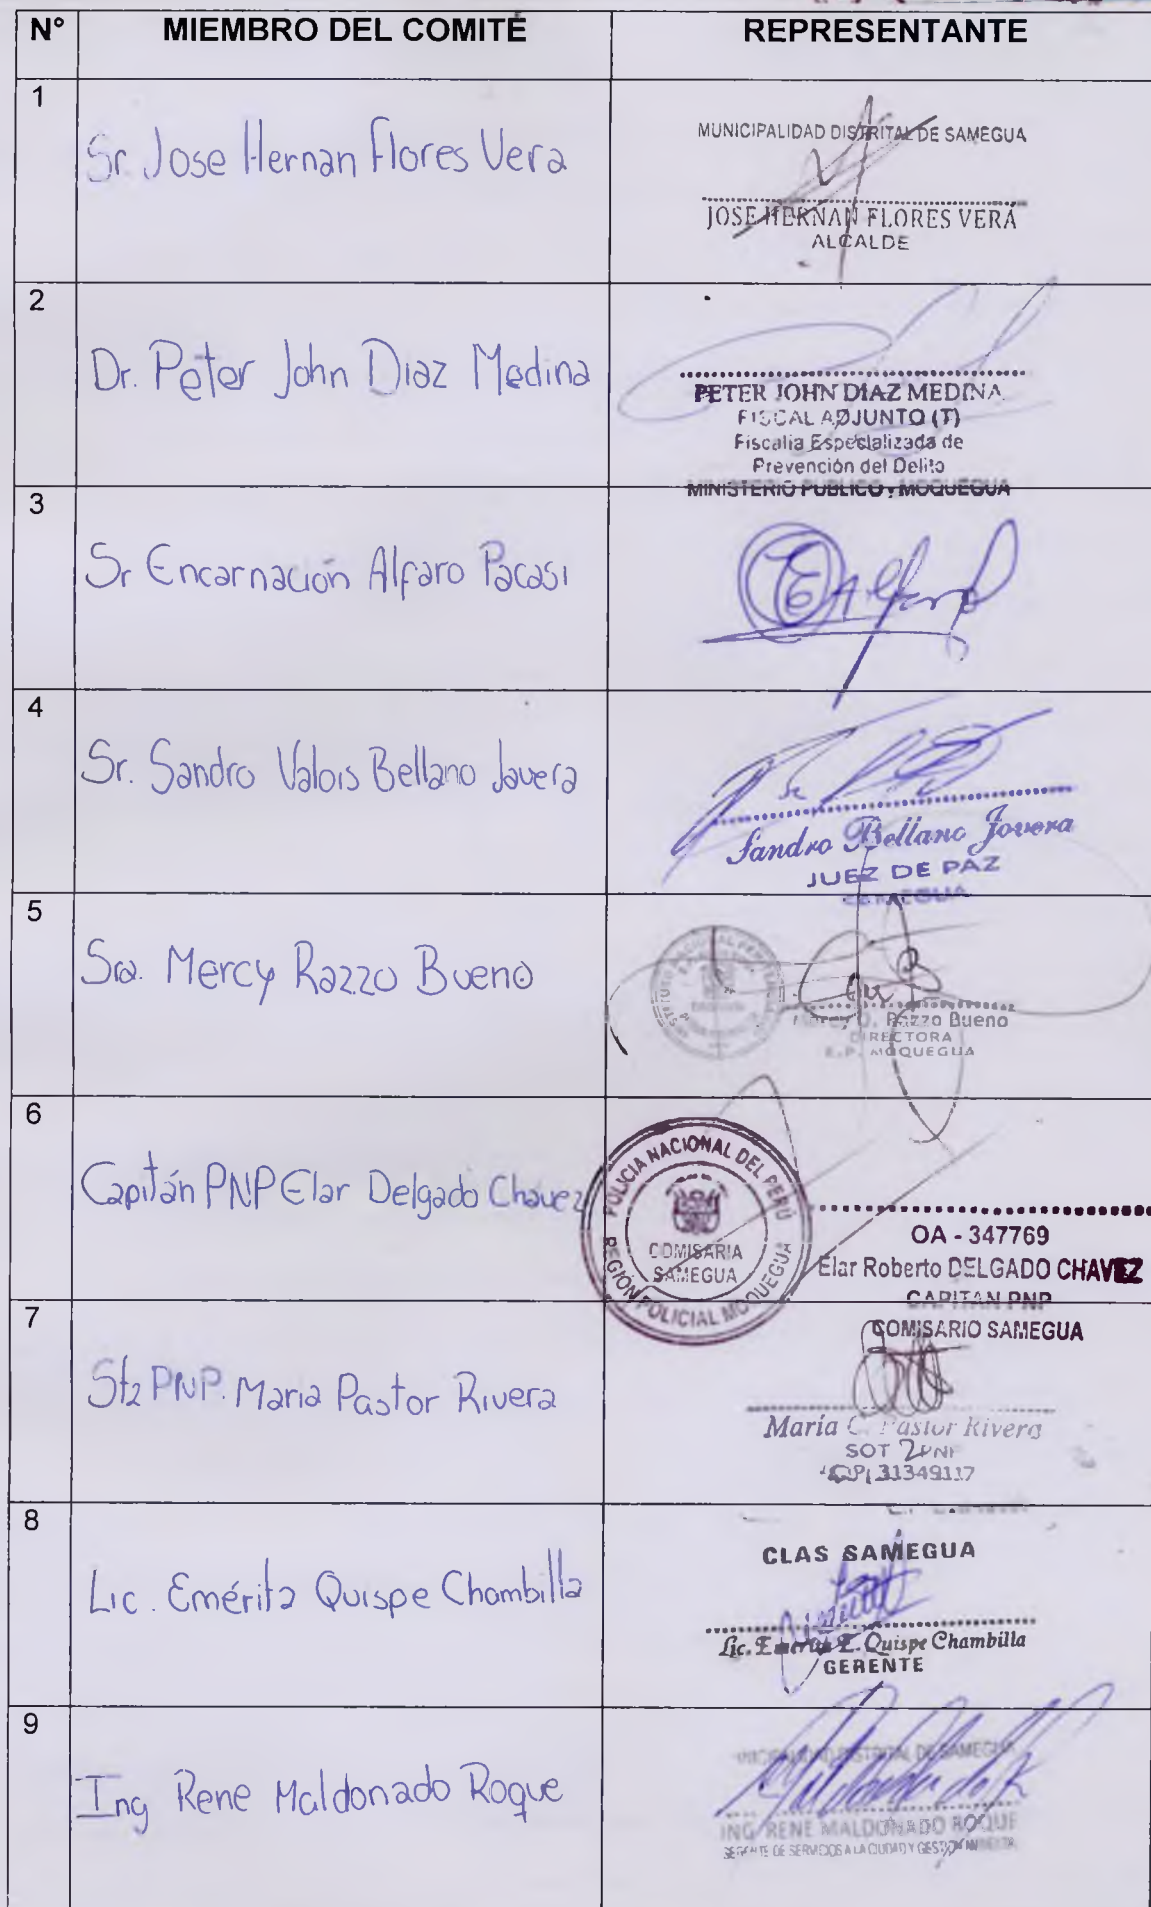 N° MIEMBRO DEL COMITÉ REPRESENTANTE
1
Sr. Jose Hernan Flores Vera
MUNICIPALIDAD DISTRITAL DE SAMEGUA
JOSE HERNAN FLORES VERA
ALCALDE
2
Dr. Peter John Diaz Medina
PETER JOHN DIAZ MEDINA
FISCAL ADJUNTO (T)
Fiscalia Especializada de
Prevención del Delito
MINISTERIO PUBLICO - MOQUEGUA
3
Sr Encarnación Alfaro Pacasi
4
Sr. Sandro Valois Bellano Javera
Sandro Bellano Jovera
JUEZ DE PAZ
SAMEGUA
5
Sra. Mercy Razzo Bueno
Razzo Bueno
DIRECTORA
E.P. MOQUEGUA
6
Capitán PNP Elar Delgado Chávez
POLICIA NACIONAL DEL PERÚ
COMISARIA
SAMEGUA
REGIÓN POLICIAL MOQUEGUA
OA - 347769
Elar Roberto DELGADO CHAVEZ
CAPITAN PNP
COMISARIO SAMEGUA
7
St2 PNP. Maria Pastor Rivera
María C. Pastor Rivera
SOT 2 PNP
31349117
8
Lic. Emérita Quispe Chambilla
CLAS SAMEGUA
Lic. Emerita E. Quispe Chambilla
GERENTE
9
Ing Rene Maldonado Roque
MUNICIPALIDAD DISTRITAL DE SAMEGUA
ING. RENE MALDONADO ROQUE
GERENTE DE SERVICIOS A LA CIUDAD Y GESTION AMBIENTAL